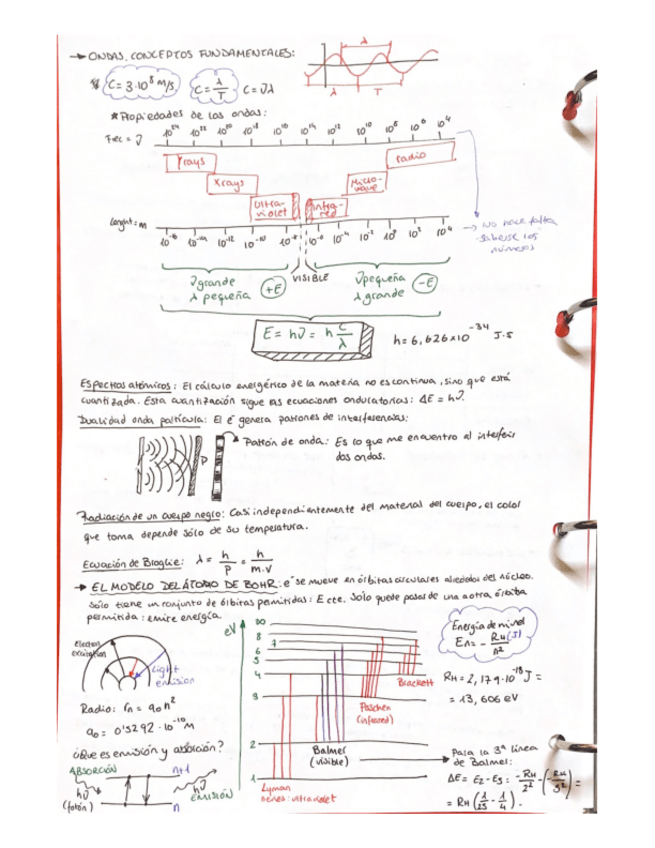 → ONDAS, CONCEPTOS FUNDAMENTALES:
C = 3·10⁸ m/s, C = λ/T C = Jλ
λ
λ T
*Propiedades de las ondas:
Frec = J 10²⁴ 10²² 10²⁰ 10¹⁸ 10¹⁶ 10¹⁴ 10¹² 10¹⁰ 10⁸ 10⁶ 10⁴
γrays Xrays Ultra-violet Infra-red Micro-wave radio
Lenght = m 10⁻¹⁶ 10⁻¹⁴ 10⁻¹² 10⁻¹⁰ 10⁻⁸ 10⁻⁶ 10⁻⁴ 10⁻² 10⁰ 10² 10⁴
→ No hace falta
saberse los
números
J grande +E VISIBLE J pequeña -E
λ pequeña λ grande
E = hJ = h C/λ h = 6,626x10⁻³⁴ J·s
Espectros atómicos: El cálculo energérico de la materia no es continua, sino que está
cuantizada. Esta cuantización sigue las ecuaciones ondulatorias: ΔE = hJ.
Dualidad onda partícula: El é genera patrones de interferencias:
Patrón de onda: Es lo que me encuentro al interferir
dos ondas.
P
Radiación de un cuerpo negro: Casi independientemente del material del cuerpo, el color
que toma depende sólo de su temperatura.
Ecuación de Broglie: λ = h/P = h/m.v
→ EL MODELO DEL ÁTOMO DE BOHR: e⁻ se mueve en órbitas circulares alrededor del núcleo.
Solo tiene un conjunto de órbitas permitidas: E cte. Solo puede pasar de una a otra órbita
permitida: emite energía.
electron
excitation
light
emision
Radio: rₙ = a₀n²
a₀ = 0'5292·10⁻¹⁰ M
¿Que es emisión y absorción?
ABSORCIÓN n+1
hJ hJ
(fotón) n EMISIÓN
eV
∞
8
7
6
5
4
3
2
1
Brackett
Paschen
(infrared)
Balmer
(visible)
Lyman
series: ultraviolet
Energía de nivel
Eₙ = - R_H (J)/n²
R_H = 2,179·10⁻¹⁸ J =
= 13,606 eV
Para la 3ª línea
de Balmer:
ΔE = E₂ - E₅ = -R_H/2² - (-R_H/5²) =
= R_H (1/25 - 1/4).